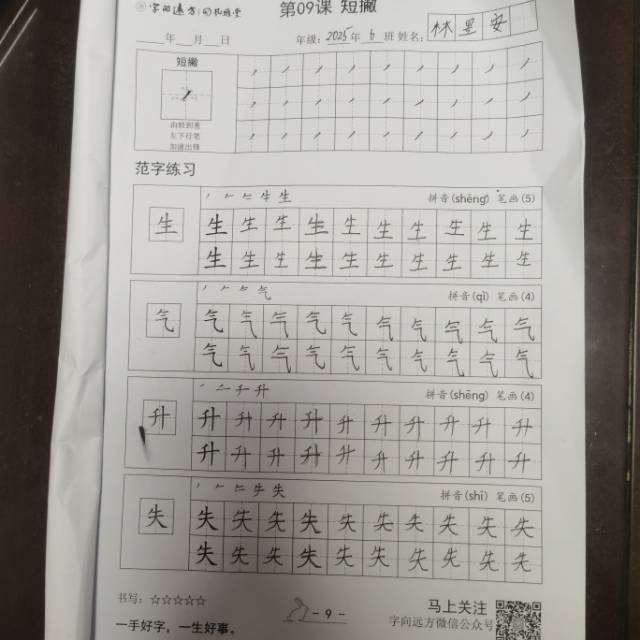 字向远方
第09课 短撇
年 月 日 年级:2025年6班 姓名:林星安
短撇
由轻到重
左下行笔
加速出锋
范字练习
牛生 拼音(shēng) 笔画(5)
生 生生生生生生生生生生
生生生生生生生生生生
气 拼音(qì) 笔画(4)
气 气气气气气气气气气气
气气气气气气气气气气
升 拼音(shēng) 笔画(4)
升 升升升升升升升升升升
升升升升升升升升升升
失 拼音(shī) 笔画(5)
失 失失失失失失失失失失
失失失失失失失失失失
书写:☆☆☆☆☆
- 9 -
马上关注
字向远方微信公众号
一手好字,一生好事。